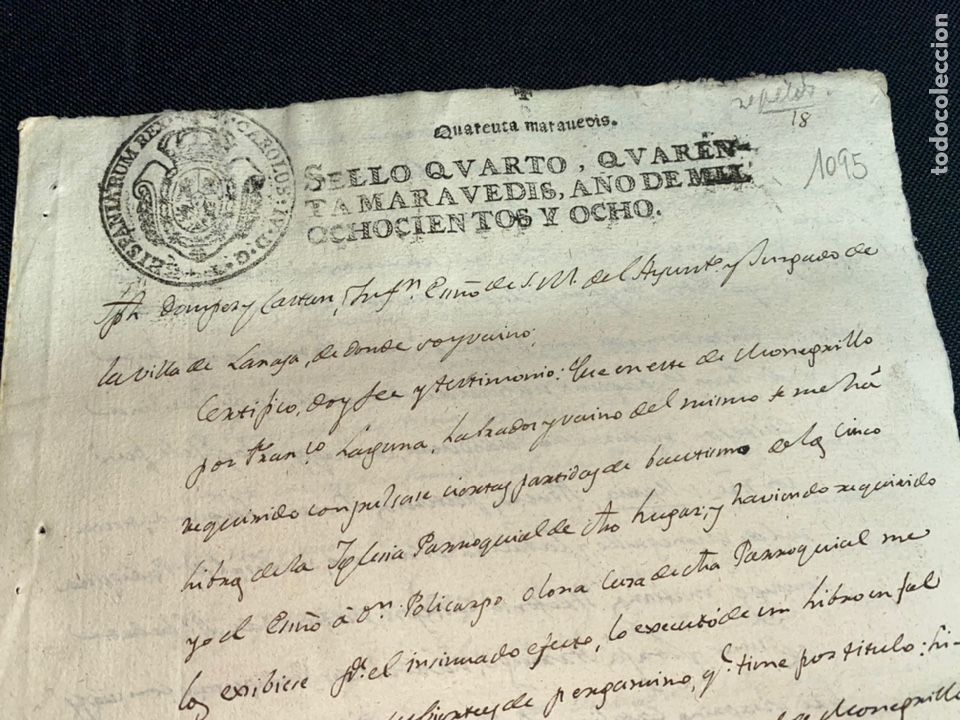 repetdo.
18
1095
Quarenta marauedis.
SELLO QVARTO, QVAREN-
TA MARAVEDIS, AÑO DE MIL
OCHOCIENTOS Y OCHO.
CAROLUS·IV·D·G· HISPANIARUM REX
Jph Domper y Lartan, Inf.n Esñno de S. M. del Ayunt.o y Jurgado de
la Villa de Lanaja, de donde soy vecino;
Certifico, doy fee y testimonio: Que en este de Monegrillo
por Fran.co Laguna, Labrador y vecino del mismo se me há
requirido compulsase ciertas partidas de bautismo de los cinco
Libros de la Iglesia Parroquial de dho Lugar, y haviendo requirido
yo el Esñno á D.n Policarpo Olona Cura de dha Parroquial me
los exibiese p.a el insinuado efecto, lo executó de un Libro en fol
de pergamino, q.e tiene por titulo: Li-
de Monegrillo
todocoleccion